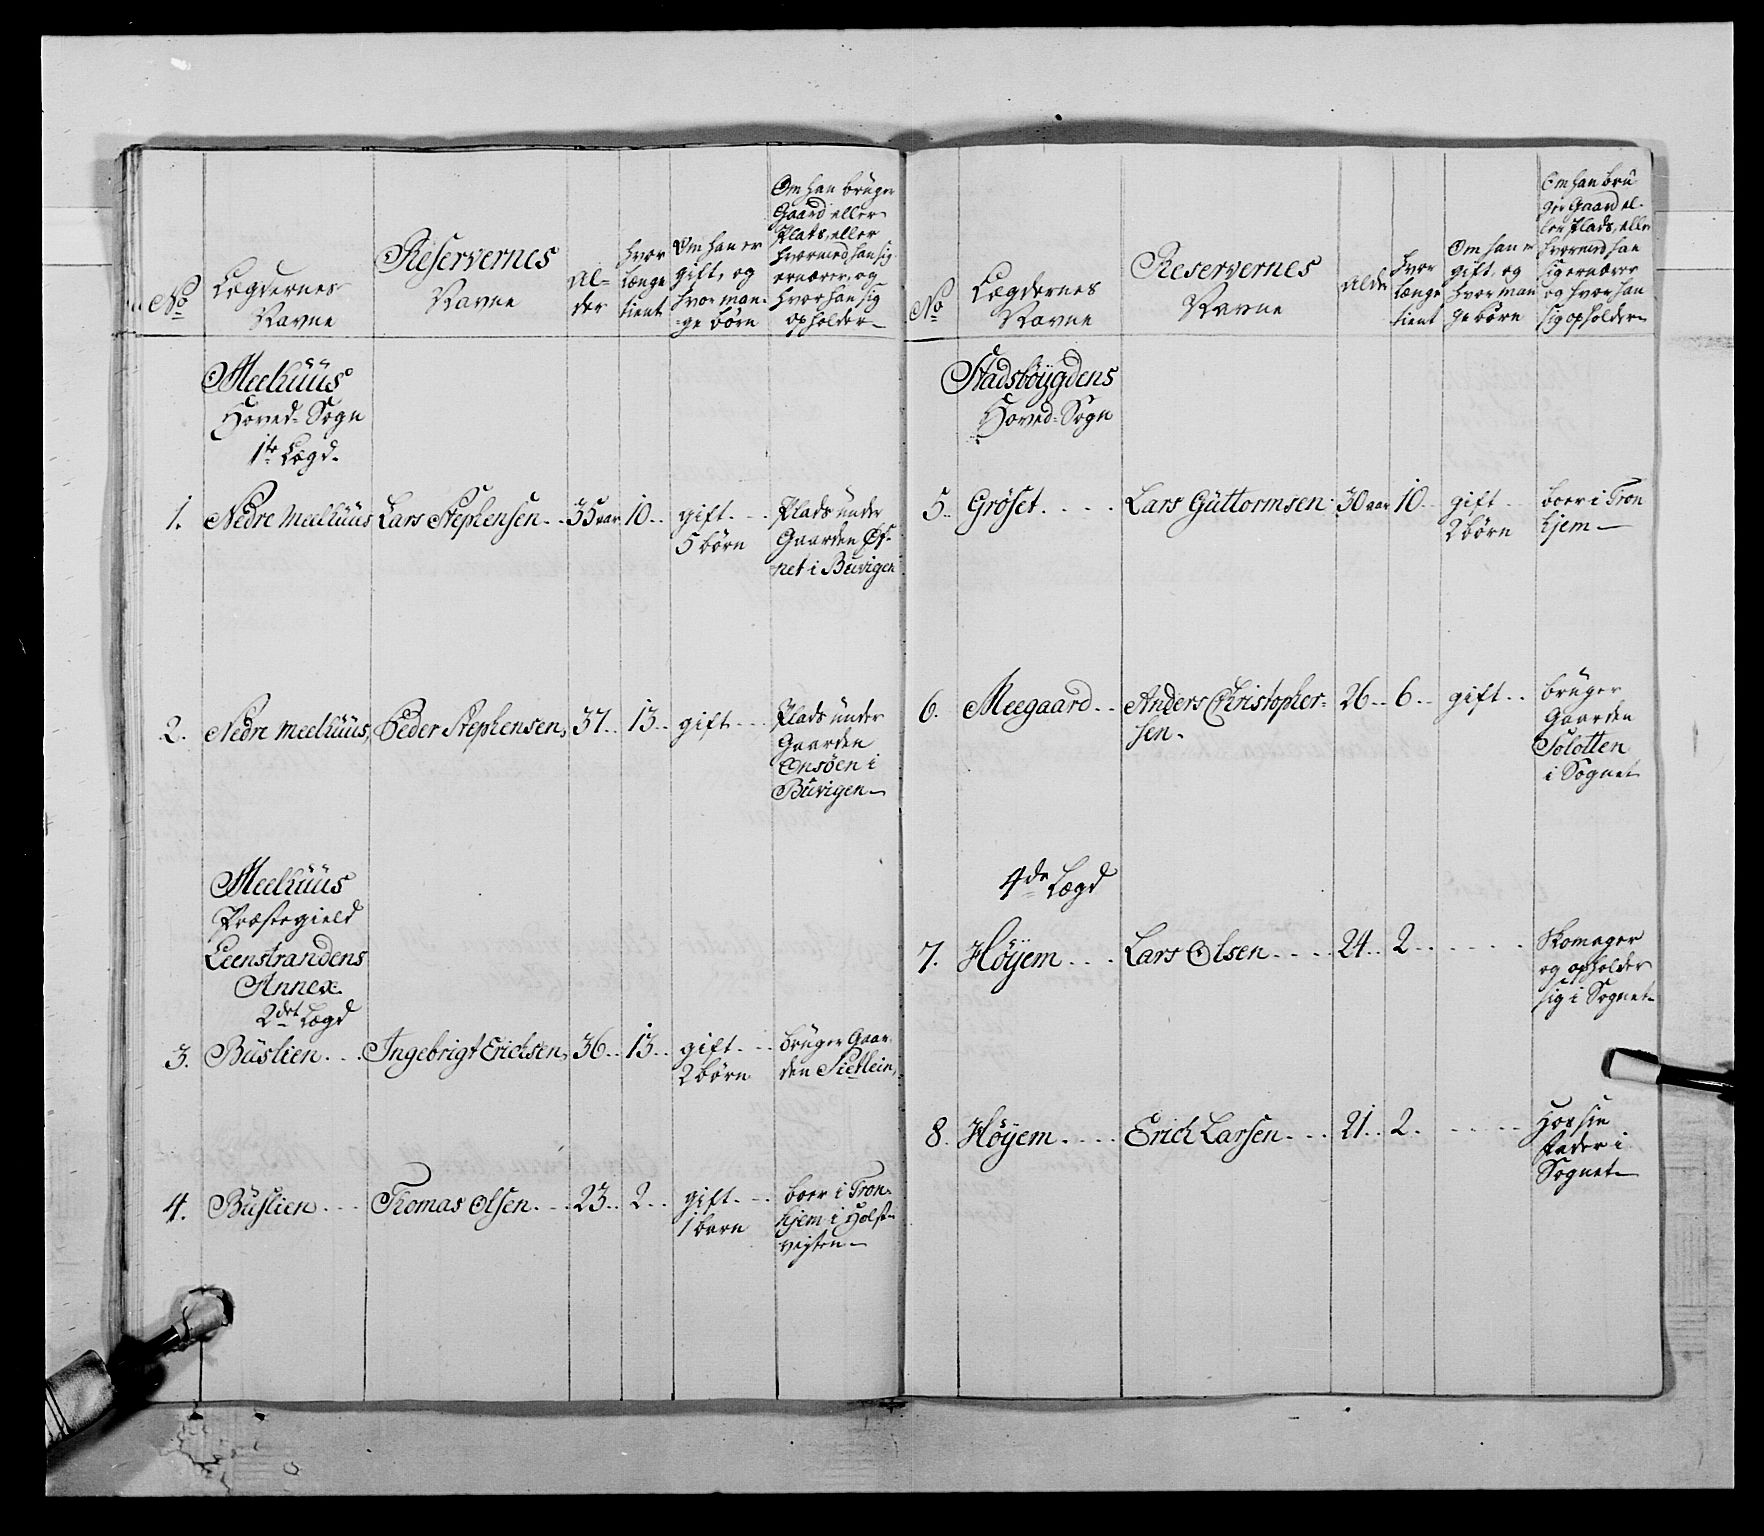 No
Lægdernes
Navne
Reservernes
Navne
Al-
der
hvor
længe
tient
Om han er
gift, og
hvor man-
ge børn
Om han bruger
Gaard eller
Plats, eller
hvormed han sig
ernærer, og
hvor han sig
opholder
Meelhüüs
Hoved-Sogn
1te Lægd.
1. Nedre Meelhüüs Lars Stephensen 35 aar 10 gift
5 børn
Plads ünder
Gaarden Øf-
net i Buvigen
2. Nedre Meelhüüs, Peder Stephensen, 37 13 gift
Plads ünder
Gaarden
Onsøen i
Büvigen
Meelhüüs
Præstegield
Leenstrandens
Annex
2det Lægd
3. Büslien Ingebrigt Erichsen, 36 13 gift
2 børn
brüger Gaar-
den
4. Büslien Thomas Olsen 23 2 gift
1 barn
boer i Tron-
hjem i Holst-
vejten
No
Lægdernes
Navne
Reservernes
Navne
Alder
hvor
længe
tient
Om han er
gift, og
hvor man
ge børn
Om han brü
ger Gaard el-
ler Plads, eller
hvormed han
sig ernærer
og hvor han
sig opholder
Stadsbøygdens
Hoved-Sogn
5. Grøset Lars Güttormsen 30 aar 10 gift
2 børn
boer i Tron
hjem
6. Meegaard Anders Christopher-
sen.
26 6 gift
brüger
Gaarden
Solotten
i Sognet
4de Lægd
7. Høyem Lars Olsen 24 2
Skomager
og opholder
sig i Sognet
8. Høyem Erich Larsen 21 2
Hos sin
Fader i
Sognet